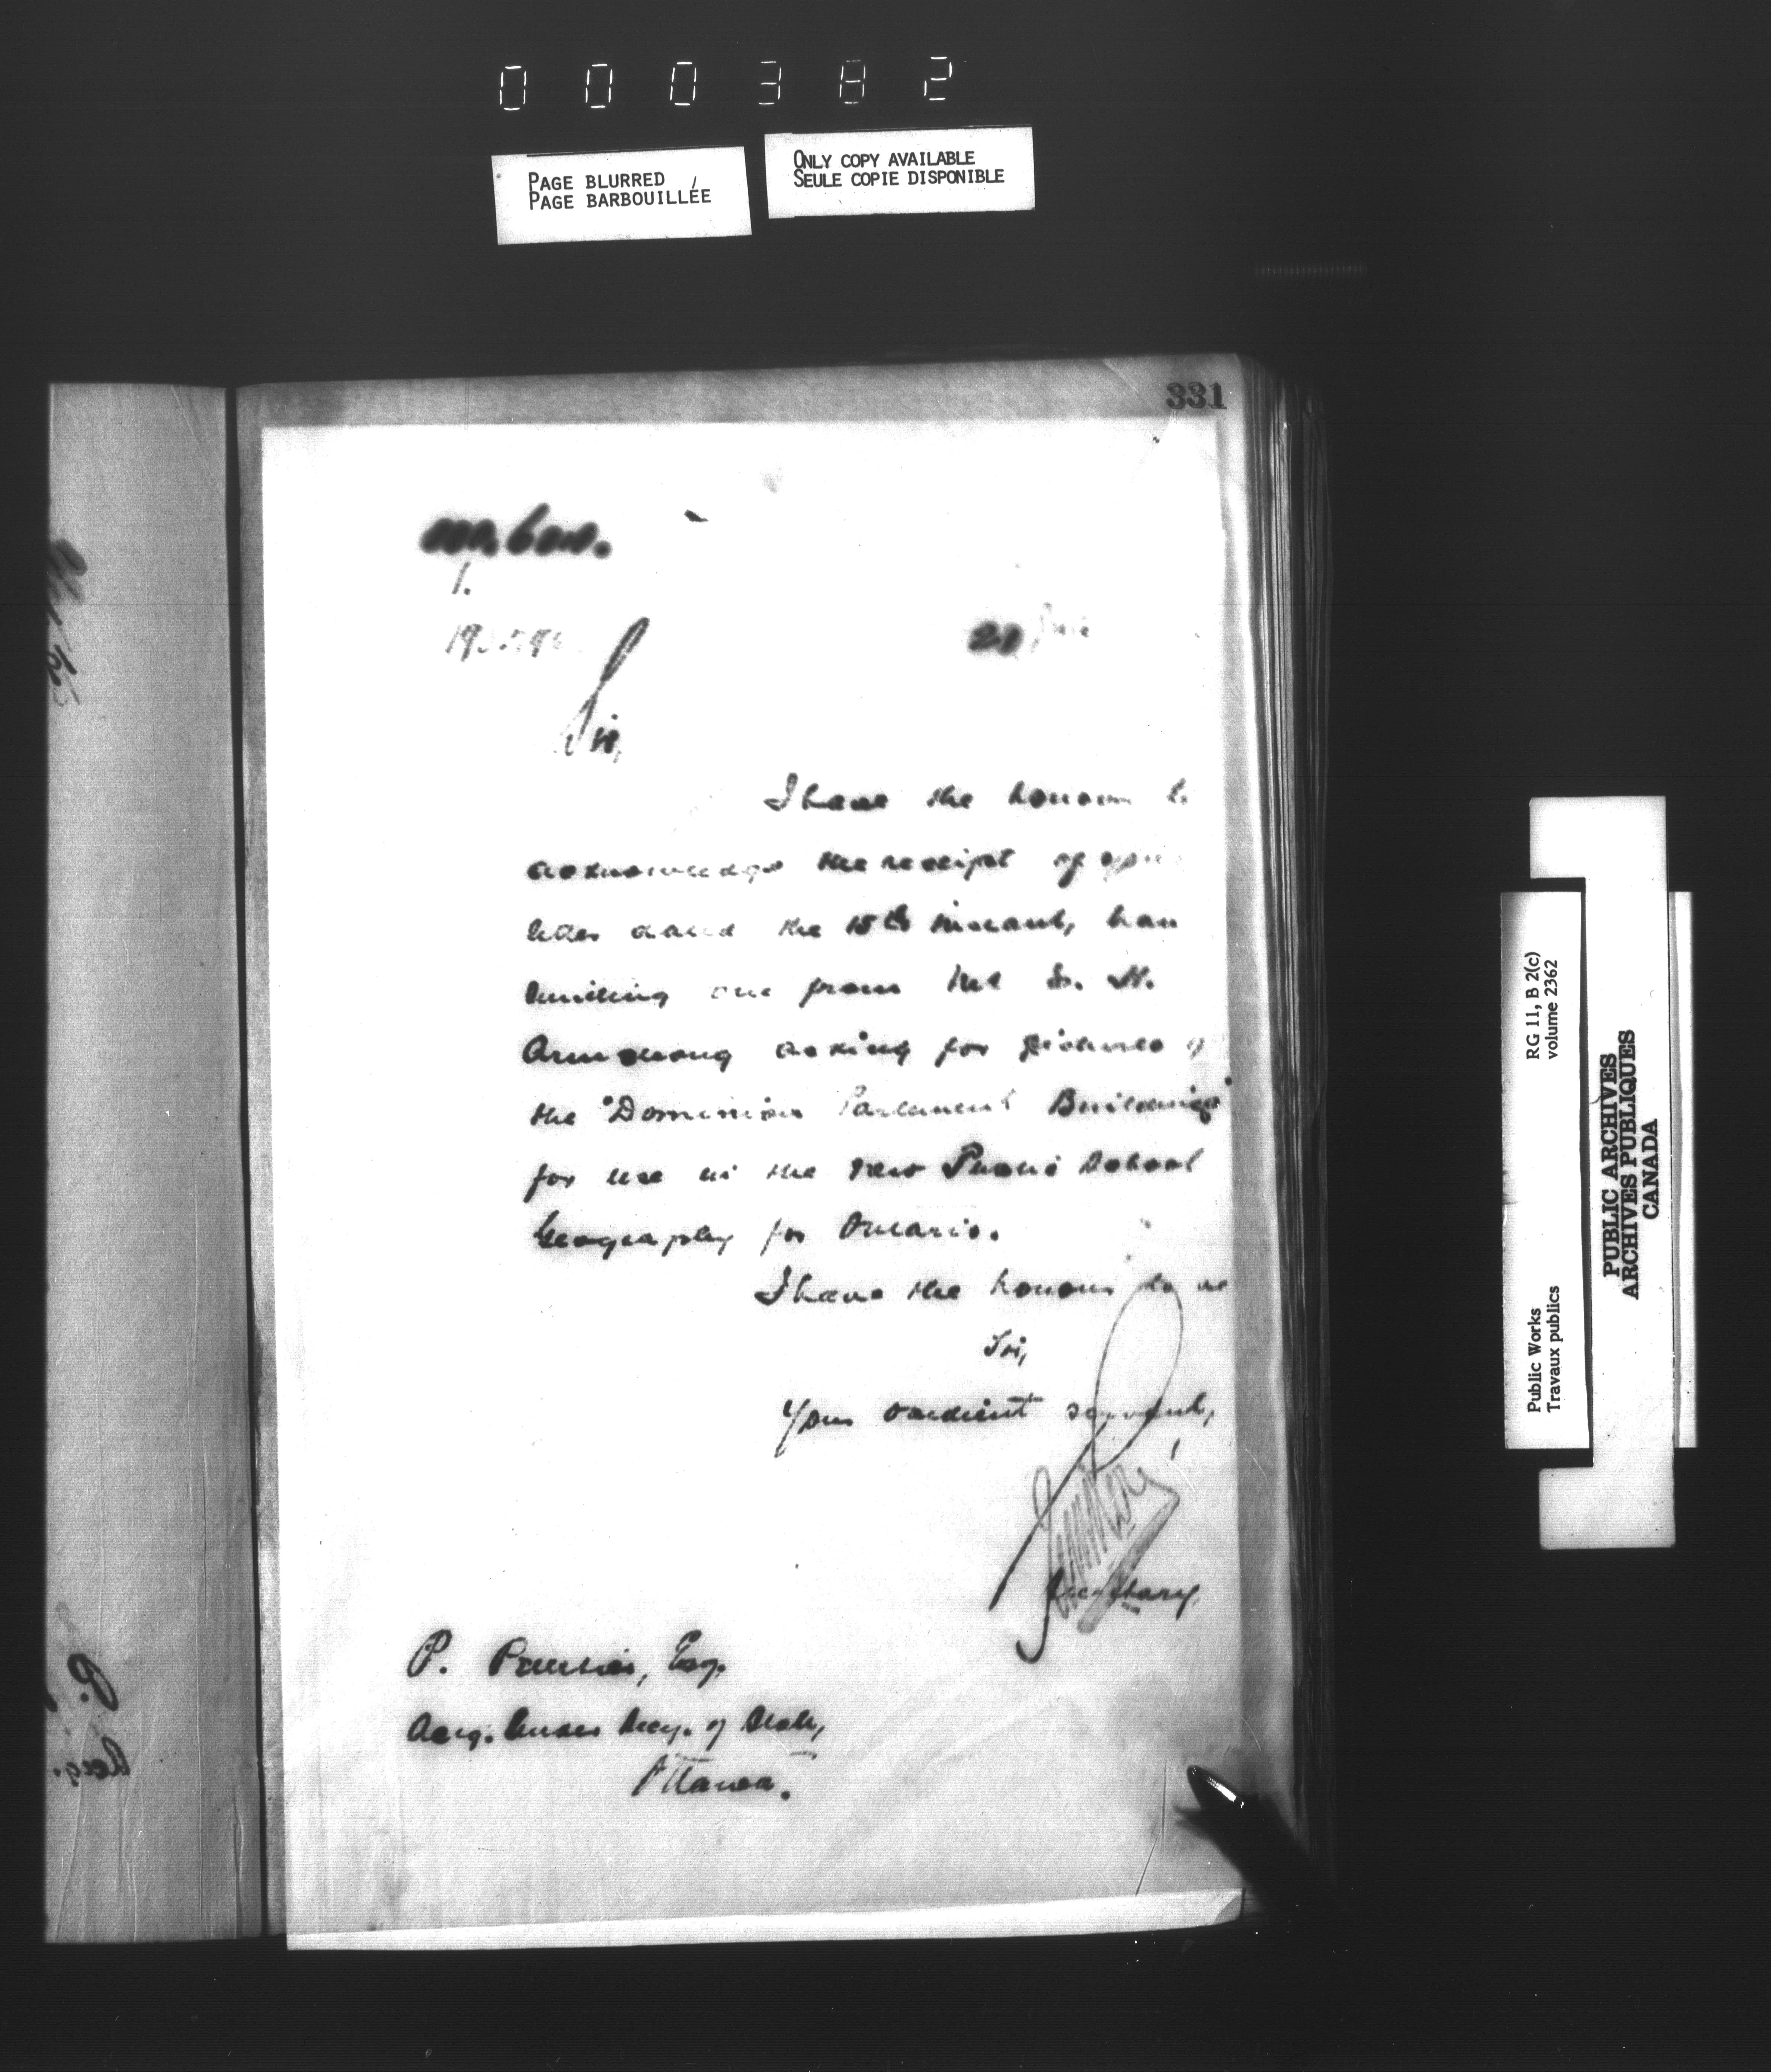 000382
PAGE BLURRED
PAGE BARBOUILLÉE
ONLY COPY AVAILABLE
SEULE COPIE DISPONIBLE
331
1.
20
Sir,
I have the honour to
acknowledge the receipt of your
letter dated the 15th instant, trans
mitting one from Mr
Armstrong asking for pictures of
the "Dominion Parliament Buildings"
for use in the new Public School
Geography for Ontario.
I have the honour to be
Sir,
Your obedient servant,
Secretary.
P. Pelletier, Esq.
Actg. Under Secy. of State,
Ottawa.
RG 11, B 2(c)
volume 2362
Public Works
Travaux publics
PUBLIC ARCHIVES
ARCHIVES PUBLIQUES
CANADA